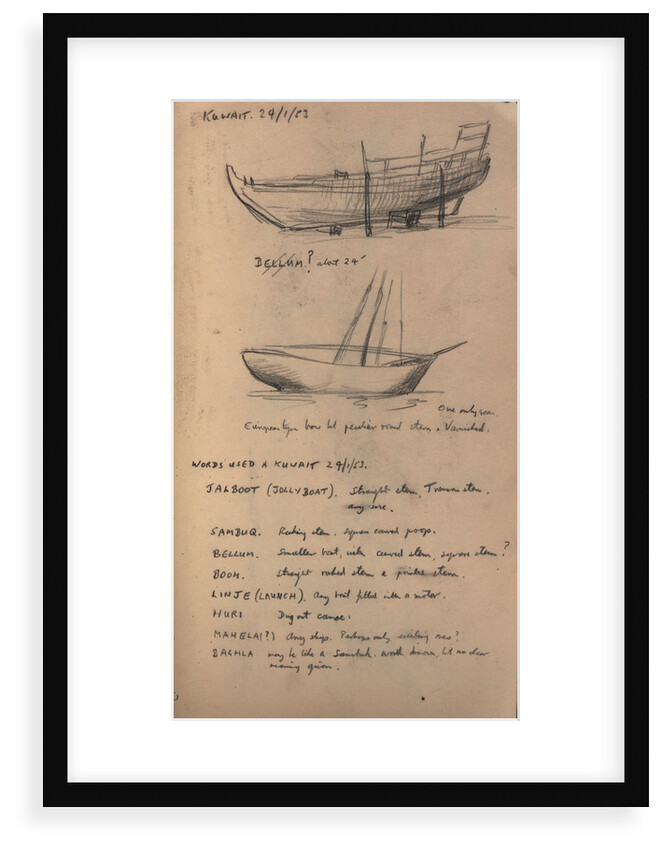 KUWAIT. 29/1/53
BELLUM? about 24'
One only seen.
European type bow but peculiar round stern. Varnished.
WORDS USED A KUWAIT 29/1/53.
JALBOOT (JOLLYBOAT). Straight stem, Transom stern.
any size.
SAMBUQ. Raking stem. square carved poop.
BELLUM. Smaller boat, with curved stem, square stern?
BOOM. Straight raked stem & pointed stern.
LINJE (LAUNCH). Any boat fitted with a motor.
HURI Dug out canoe.
MAHELA(?) Any ships. Perhaps only sailing ones?
BAGHLA may be like a Sambuk. worth drawn, but no clear
meaning given.